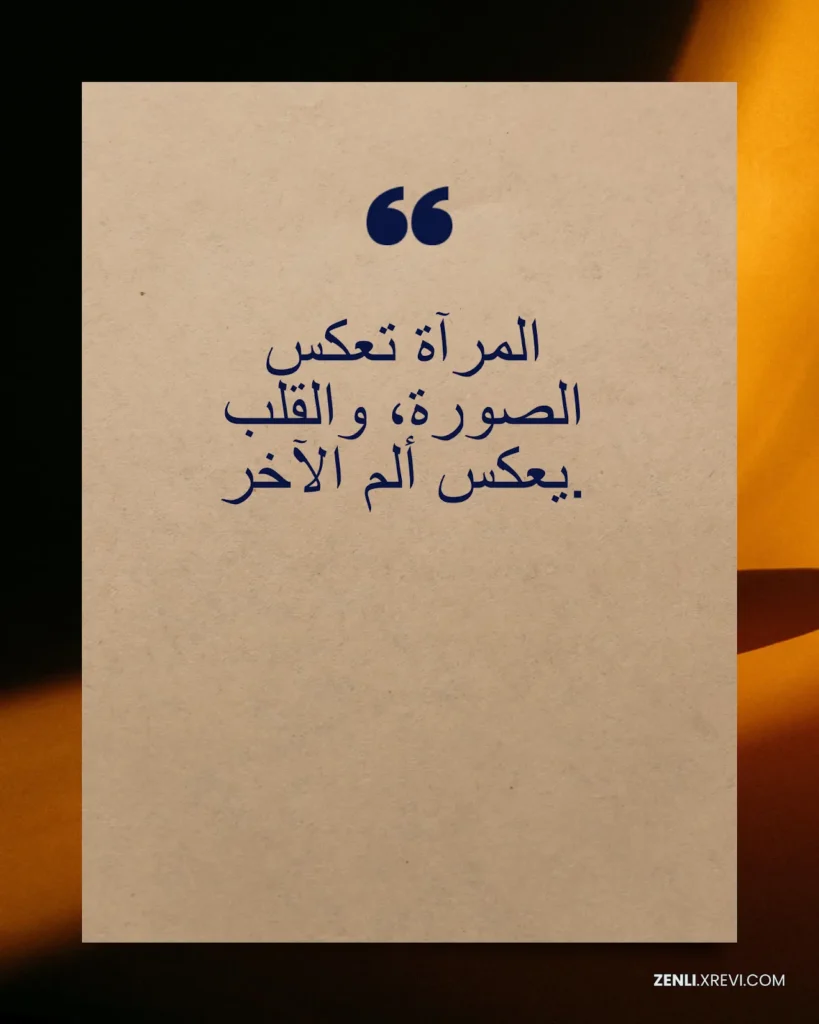 ❝
المرآة تعكس
الصورة، والقلب
يعكس ألم الآخر.
ZENLI.XREVI.COM